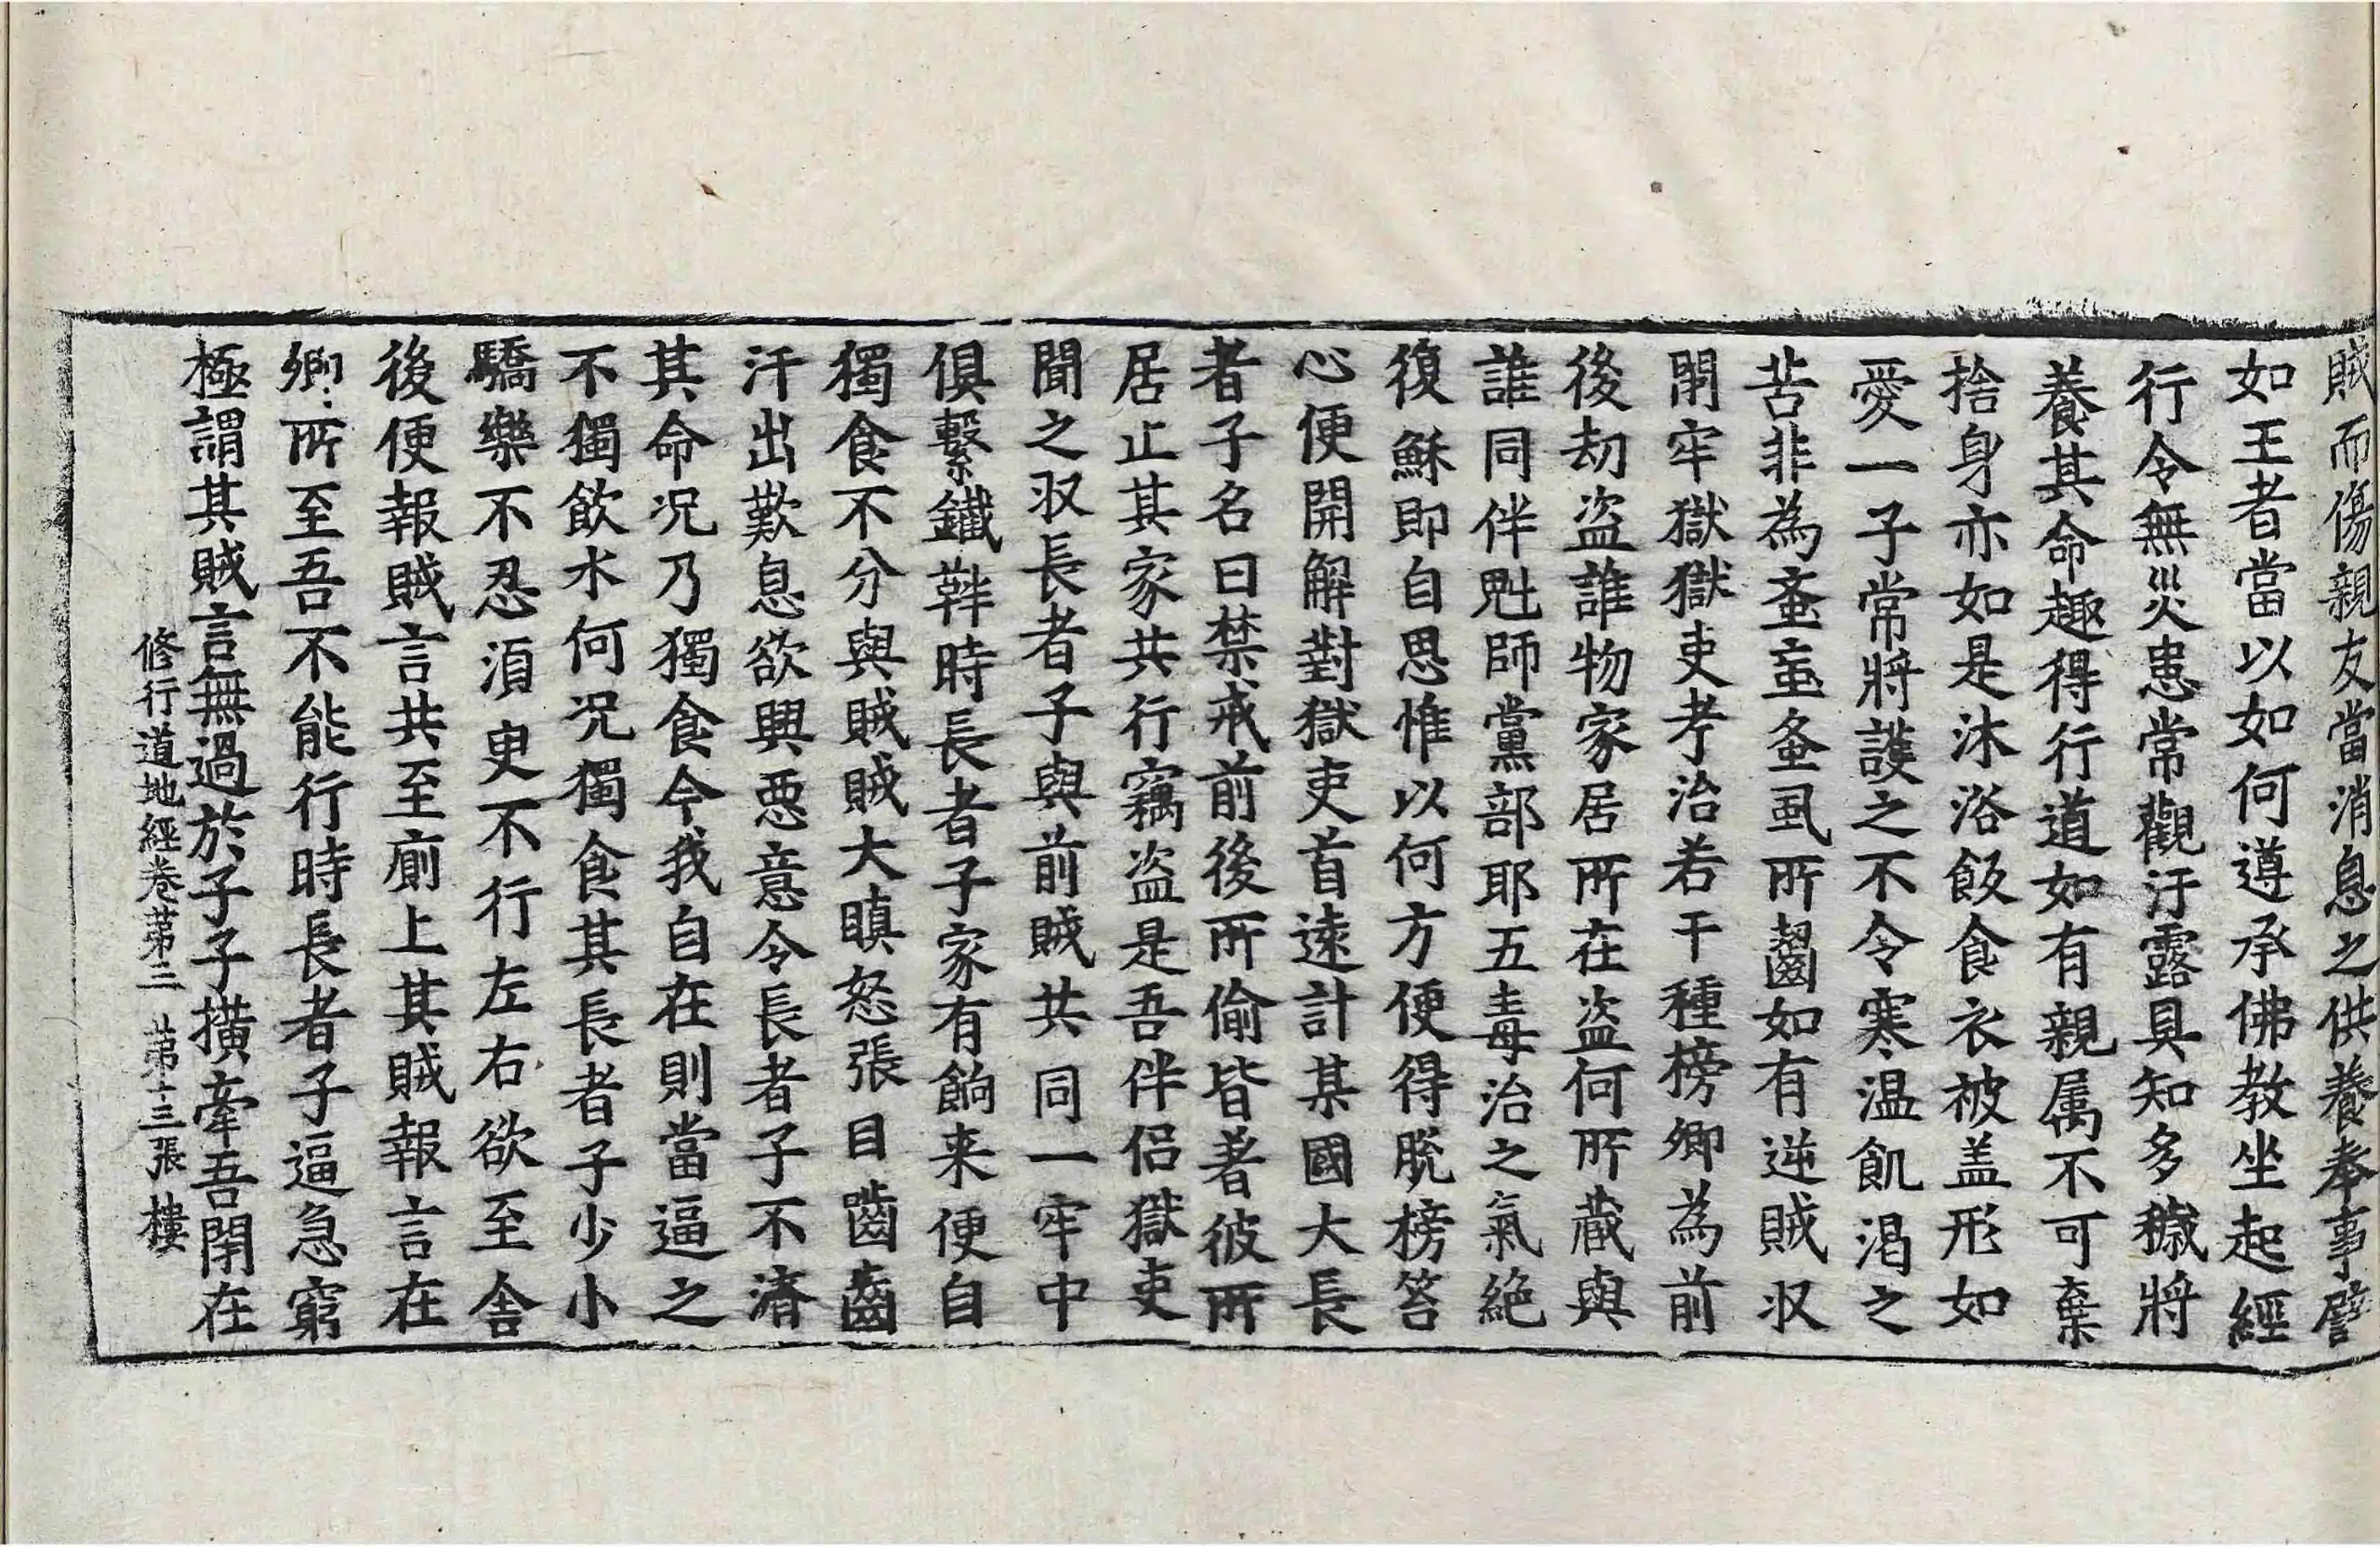 賊而傷親友當消息之供養奉事譬
如王者當以如何遵承佛教坐起經
行令無災患常觀汙露具知多穢將
養其命趣得行道如有親属不可棄
捨身亦如是沐浴飯食衣被盖形如
愛一子常將護之不令寒温飢渴之
苦非為蚤䖟蚤虱所齧如有逆賊収
閇牢獄獄吏考治若干種榜卿為前
後劫盗誰物家居所在盗何所藏與
誰同伴魁師黨部耶五毒治之氣絶
復穌即自思惟以何方便得脫榜笞
心便開解對獄吏首遠計某國大長
者子名曰禁戒前後所偷皆著彼所
居止其家共行竊盗是吾伴侣獄吏
聞之収長者子與前賊共同一牢中
俱繫鐵靽時長者子家有餉来便自
獨食不分與賊賊大瞋怒張目嚙齒
汗出歎息欲興惡意令長者子不濟
其命况乃獨食今我自在則當逼之
不獨飲水何况獨食其長者子少小
驕樂不忍湏臾不行左右欲至舎
後便報賊言共至廁上其賊報言在
卿所至吾不能行時長者子逼急窮
極謂其賊言無過於子子撗牽吾閇在
修行道地經卷苐三 苐十三張 樓